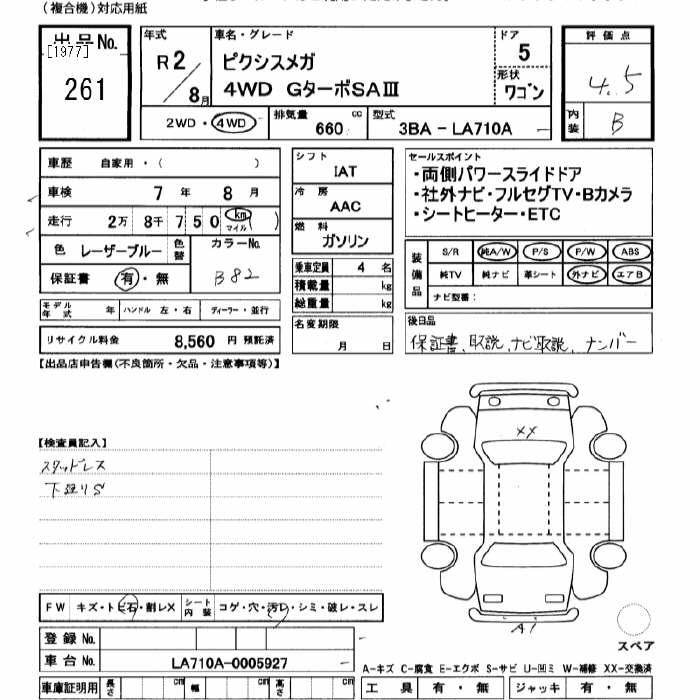 (複合機)対応用紙
出品No.
[1977]
261
年式
R2/8月
車名・グレード
ピクシスメガ
4WD GターボSAⅢ
ドア
5
形状
ワゴン
2WD・4WD
排気量
660 cc
型式
3BA - LA710A
評価点
4.5
内装
B
車歴 自家用・( )
車検 7年 8月
走行 2万 8千 7 5 0 km マイル ( )
色 レーザーブルー 色替
カラーNo.
B82
保証書 有・無
モデル年式 年 ハンドル 左・右 ディーラー・並行
リサイクル料金 8,560 円 預託済
シフト
IAT
冷房
AAC
燃料
ガソリン
乗車定員 4 名
積載量 kg
総重量 kg
名変期限
月 日
セールスポイント
・両側パワースライドドア
・社外ナビ・フルセグTV・Bカメラ
・シートヒーター・ETC
装備品
S/R 純A/W P/S P/W ABS
純TV 純ナビ 革シート 外ナビ エアB
ナビ型番:
後日品
保証書、取説、ナビ取説、ナンバー
【出品店申告欄(不良箇所・欠品・注意事項等)】
【検査員記入】
スタッドレス
下廻りS
XX
A1
FW キズ・トビ石・割レX シート内装 コゲ・穴・汚レ・シミ・破レ・スレ
登録No.
車台No. LA710A-0005927
スペア
A-キズ C-腐食 E-エクボ S-サビ U-凹ミ W-補修 XX-交換済
車庫証明用 長さ cm 幅 cm 高さ cm
工具 有・無 ジャッキ 有・無